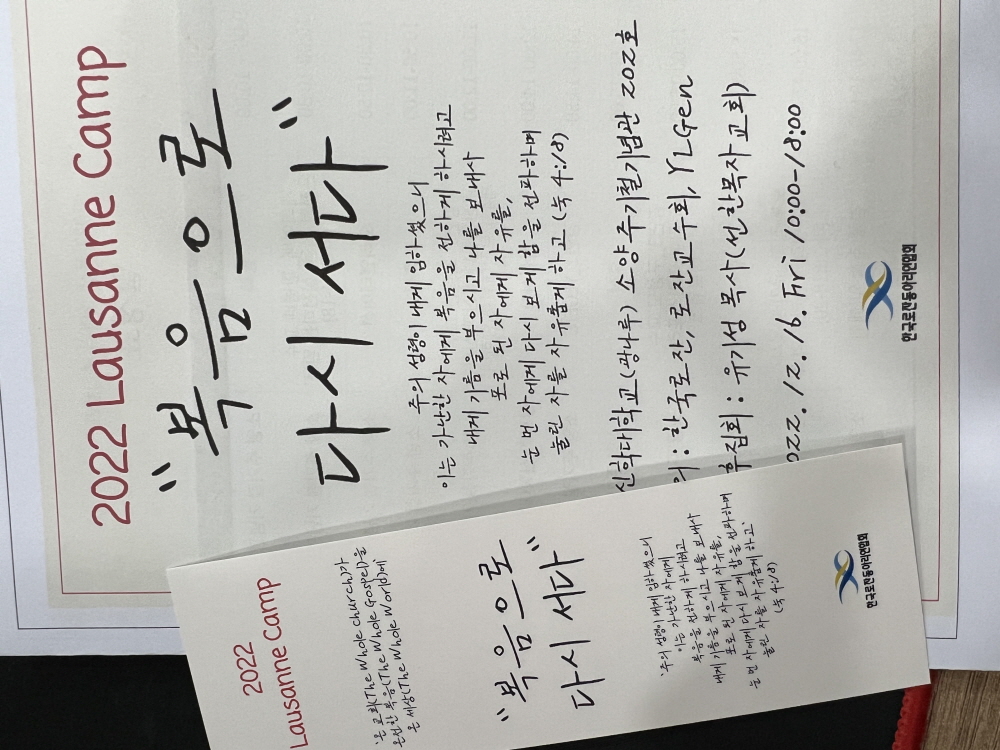 2022 Lausanne Camp
"복음으로
다시 서다"
주의 성령이 내게 임하셨으니
이는 가난한 자에게 복음을 전하게 하시려고
내게 기름을 부으시고 나를 보내사
포로 된 자에게 자유를,
눈 먼 자에게 다시 보게 함을 전파하며
눌린 자를 자유롭게 하고 (눅 4:18)
신학대학교(광나루) 소양주기철기념관 202호
의 : 한국로잔, 로잔교수회, YLGen
후집회 : 유기성 목사(선한목자교회)
022. 12. 16. Fri 10:00-18:00
한국로잔동아리연합회
2022
Lausanne Camp
'온 교회(The Whole Church)가
온전한 복음(The Whole Gospel)을
온 세상(The Whole World)에'
"복음으로
다시 서다"
'주의 성령이 내게 임하셨으니
이는 가난한 자에게
복음을 전하게 하시려고
내게 기름을 부으시고 나를 보내사
포로 된 자에게 자유를,
눈 먼 자에게 다시 보게 함을 전파하며
눌린 자를 자유롭게 하고'
(눅 4:18)
한국로잔동아리연합회